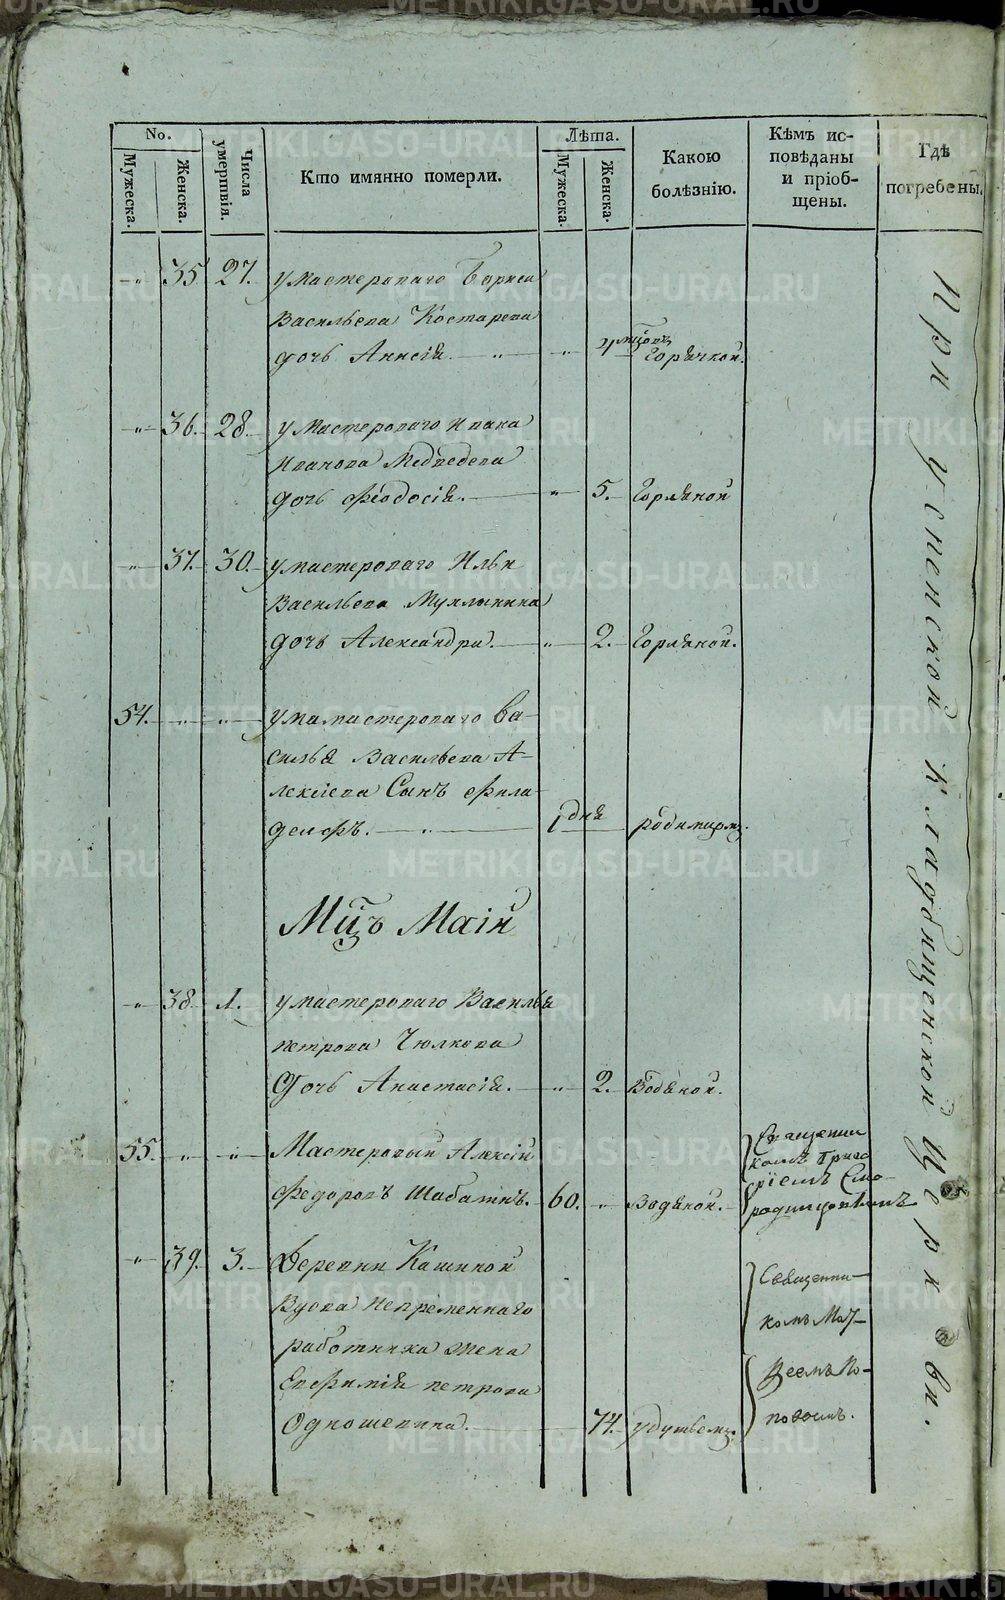 No.
Мужеска.
Женска.
Числа умертвія.
Кто имянно померли.
Лѣта.
Мужеска.
Женска.
Какою болѣзнію.
Кѣмъ исповѣданы и пріобщены.
Гдѣ погребены.
-„- 35 27. у мастероваго Бориса
Васильева Костарева
дочь Аннсія. „ „ 4 мцовъ Горячкой.
-„- 36. 28. у мастероваго Ивана
Иванова Медведева
дочь Феодосія. „ 5. Горячкой
-„- 37. 30. у мастероваго Ильи
Васильева Мухлынина
дочь Александра. „ 2. Горячкой.
54. „ „ у мамастероваго Ва-
силья Васильева А-
лексіева Сынъ Фила-
делфъ. „ 1 дня родимцомъ.
Мцъ Маій
„ 38. 1. у мастероваго Василья
петрова Чюлкова
Дочь Анастасія. „ 2. Водяной.
55. „ „ Мастеровый Алексій
Федоровъ Шабатнъ. 60. „ Водяной.
Священни
комъ Григо
ріемъ Смо-
родинцовымъ
„ 39. 3. Деревни Кашиной
Вдова непременнаго
работника жена
Евфимія петрова
Одношевина. 74. удушьемъ.
Священни-
комъ Мат-
веемъ По-
повымъ.
При успенской кладбищенской Церкви.
METRIKI.GASO-URAL.RU